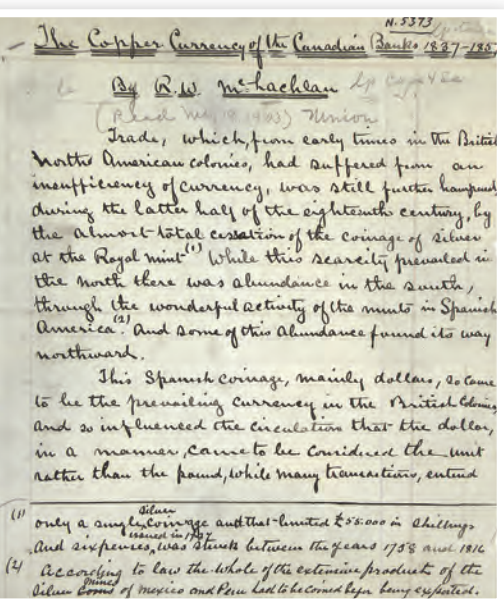 N.5373
The Copper Currency of the Canadian Banks 1837-185
By R.W. McLachlan
(Read May 19 1903) Union
Trade, which, from early times in the British
North American colonies, had suffered from an
insufficiency of currency, was still further hampered
during the latter half of the eighteenth century, by
the almost total cessation of the coinage of silver
at the Royal mint (1) While this scarcity prevailed in
the north there was abundance in the south,
through the wonderful activity of the mints in Spanish
America.(2) And some of this abundance found its way
northward.
This Spanish coinage, mainly dollars, so came
to be the prevailing currency in the British Colonies
and so influenced the circulation that the dollar,
in a manner, came to be considered the unit
rather than the pound, while many transactions, entered
(1) only a single silver coinage and that limited £55.000 in shillings
And sixpenses, issued in 1787 was struck between the years 1758 and 1816
(2) According to law the whole of the extensive products of the
silver mines of Mexico and Peru had to be coined befor being exported.